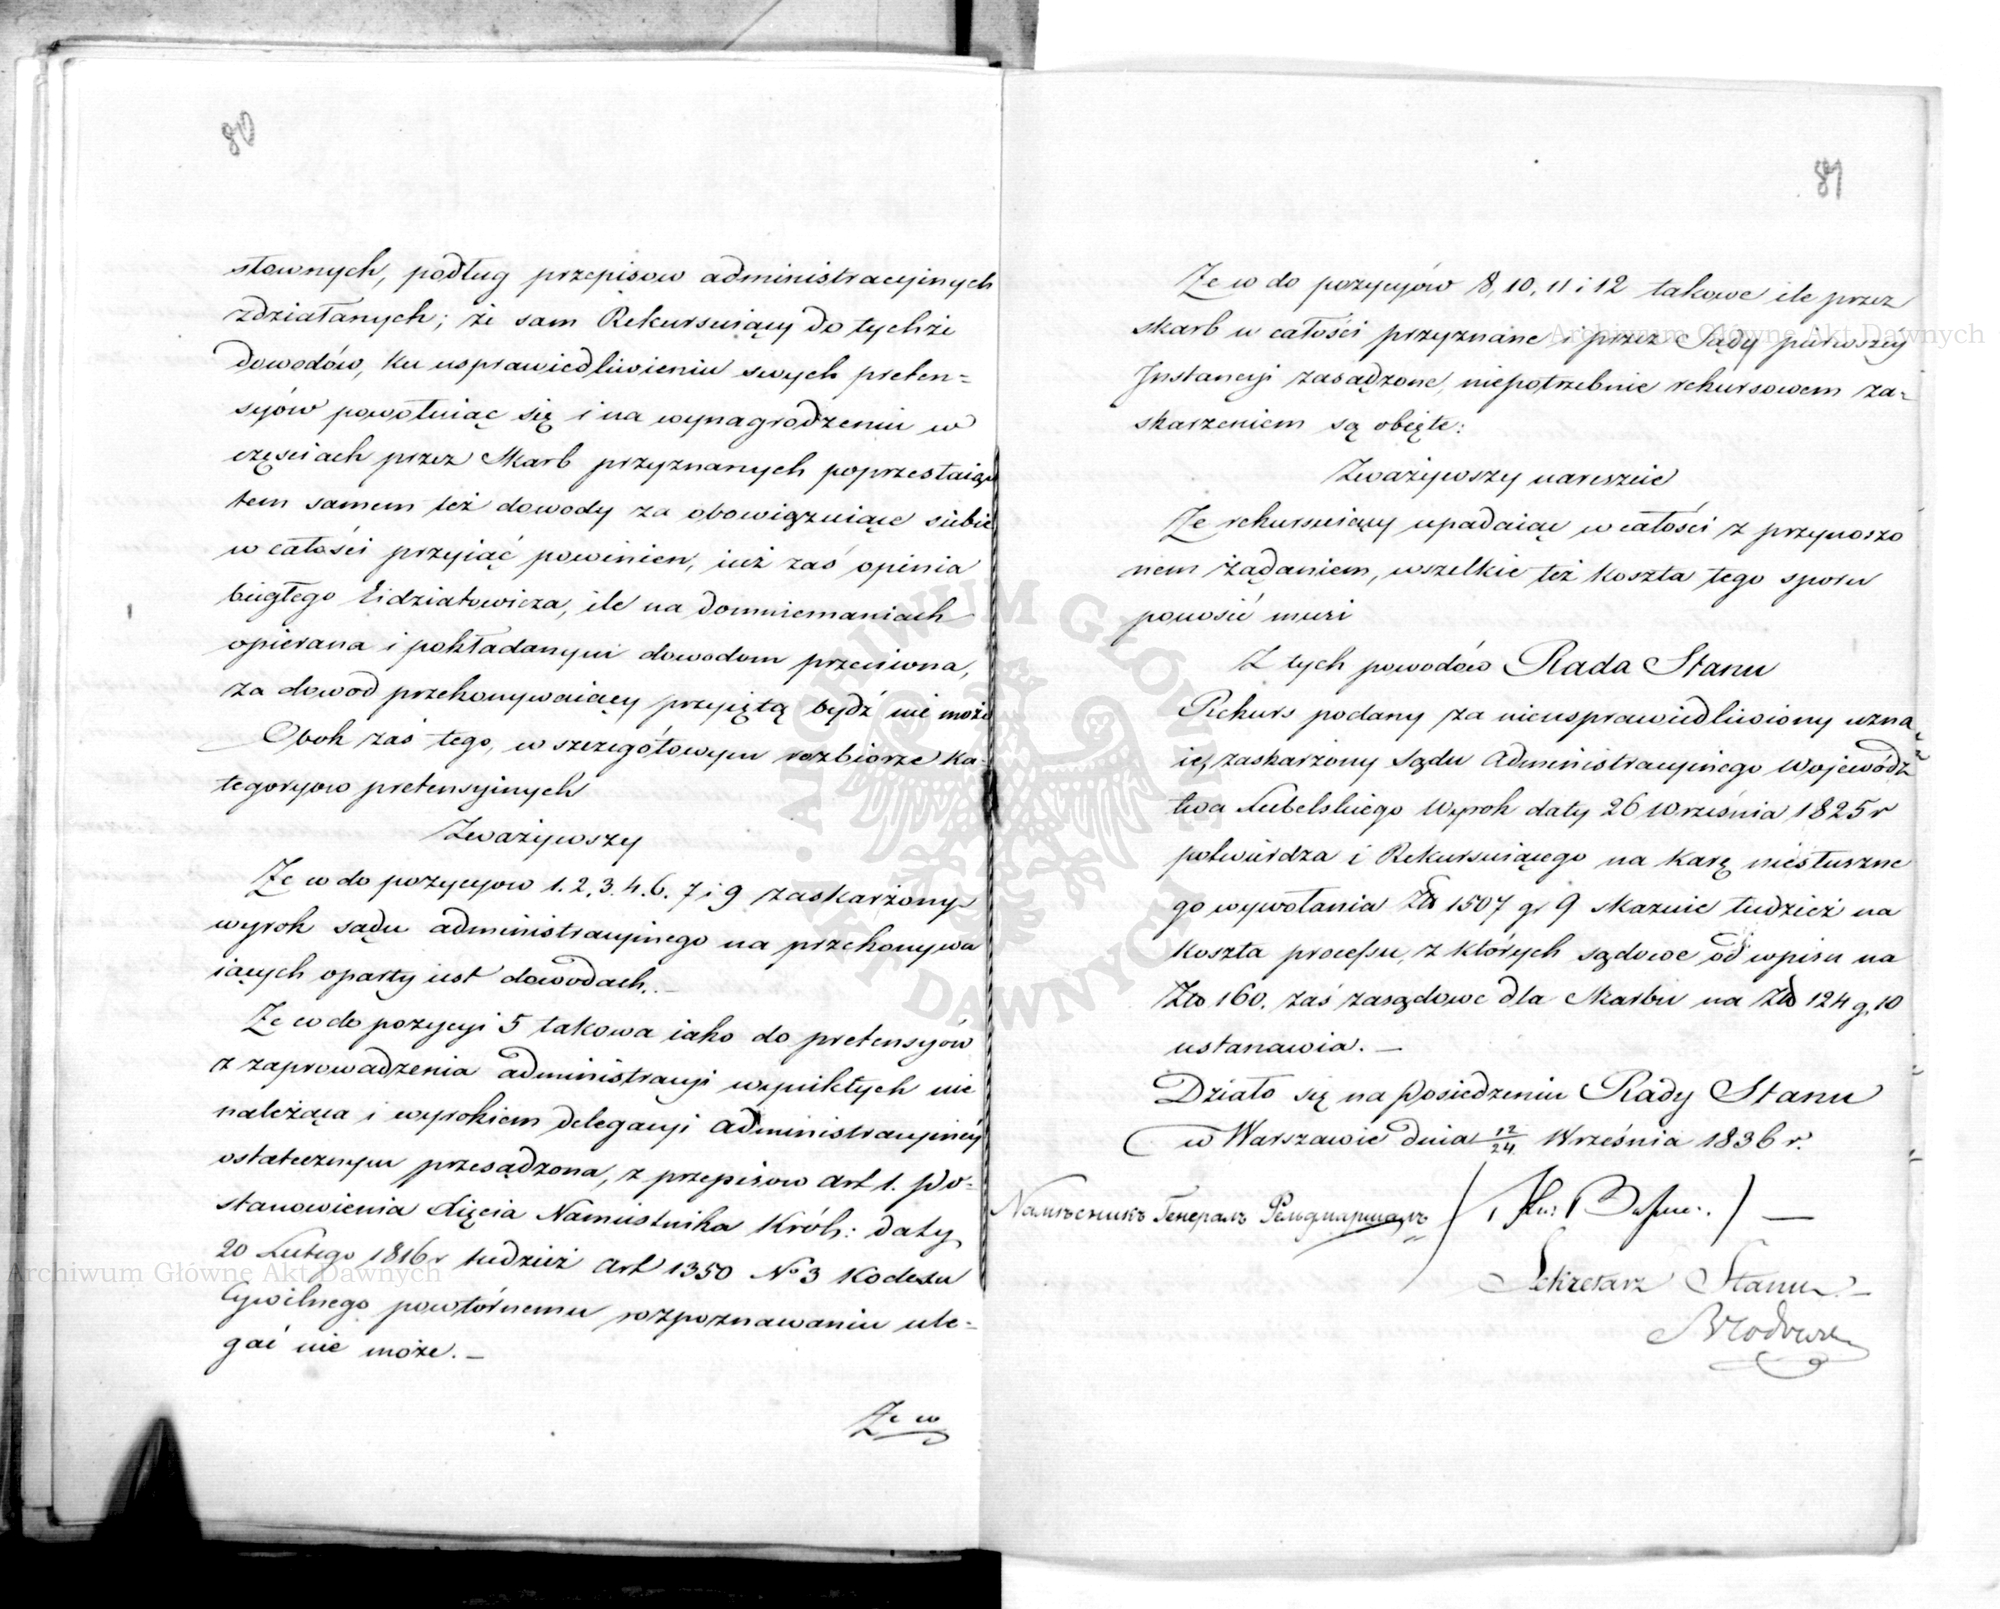 80
stownych, podług przepisow administracyinych
zdziałanych; że sam Rekursuiący do tychże
dowodów, ku usprawiedliwieniu swych preten=
syów powołuiąc się i na wynagrodzeniu w
częściach przez Skarb przyznanych poprzestaiąc
tem samem też dowody za obowięzuiące siebie
w całości przyiąć powinien, iuż zaś opinia
biegłego Eidziatowicza, ile na domniemaniach
opierana i pokładanym dowodom przeciwna,
za dowod przekonywaiący przyiętą bydź nie może
Obok zaś tego, w szczegółowym rozbiorze ka-
tegoryow pretensyinych
Zważywszy
Że co do pozycyow 1. 2. 3. 4. 6. 7 i 9 zaskarżony
wyrok sądu administracyinego na przekonywa
iących oparty iest dowodach. —
Że co do pozycyi 5 takowa iako do pretensyów
z zaprowadzenia administracyi wynikłych nie
należąca i wyrokiem delegacyi administracyiney
ostatecznym przesądzona, z przepisow art 1. po-
stanowienia Xięcia Namiestnika Król: daty
20 Lutego 1816 r tudzież art 1350 No 3 Kodexu
Cywilnego powtórnemu rozpoznawaniu ule-
gać nie może. —
Że co
81
Że co do pozycyów 8, 10, 11 i 12 takowe ile przez
skarb w całości przyznane i przez Sądy pierwszéy
Instancyi zasądzone, niepotrzebnie rekursowem za-
skarżeniem są obięte:
Zważywszy nareszcie
Że rekursuiący upadaiąc w całości z przynoszo
nem żądaniem, wszelkie też koszta tego sporu
ponosić musi
Z tych powodów Rada Stanu
Rekurs podany za nieusprawiedliwiony uzna
iąc, zaskarżony Sądu Administracyinego Wojewódz
twa Lubelskiego Wyrok daty 26 Września 1825 r
potwierdza i Rekursuiącego na karę niesłuszne
go wywołania Złp 1507 gr 9 skazuie tudzież na
koszta processu, z których sądowe od wpisu na
Złp 160. zaś zasądowe dla Skarbu na Złp 124 g. 10
ustanawia. —
Działo się na Posiedzeniu Rady Stanu
w Warszawie dnia 12/24 Września 1836 r.
Намѣсникъ Генералъ Фельдмаршалъ
Sekretarz Stanu. —
Archiwum Główne Akt Dawnych
Archiwum Główne Akt Dawnych
ARCHIWUM GŁÓWNE AKT DAWNYCH